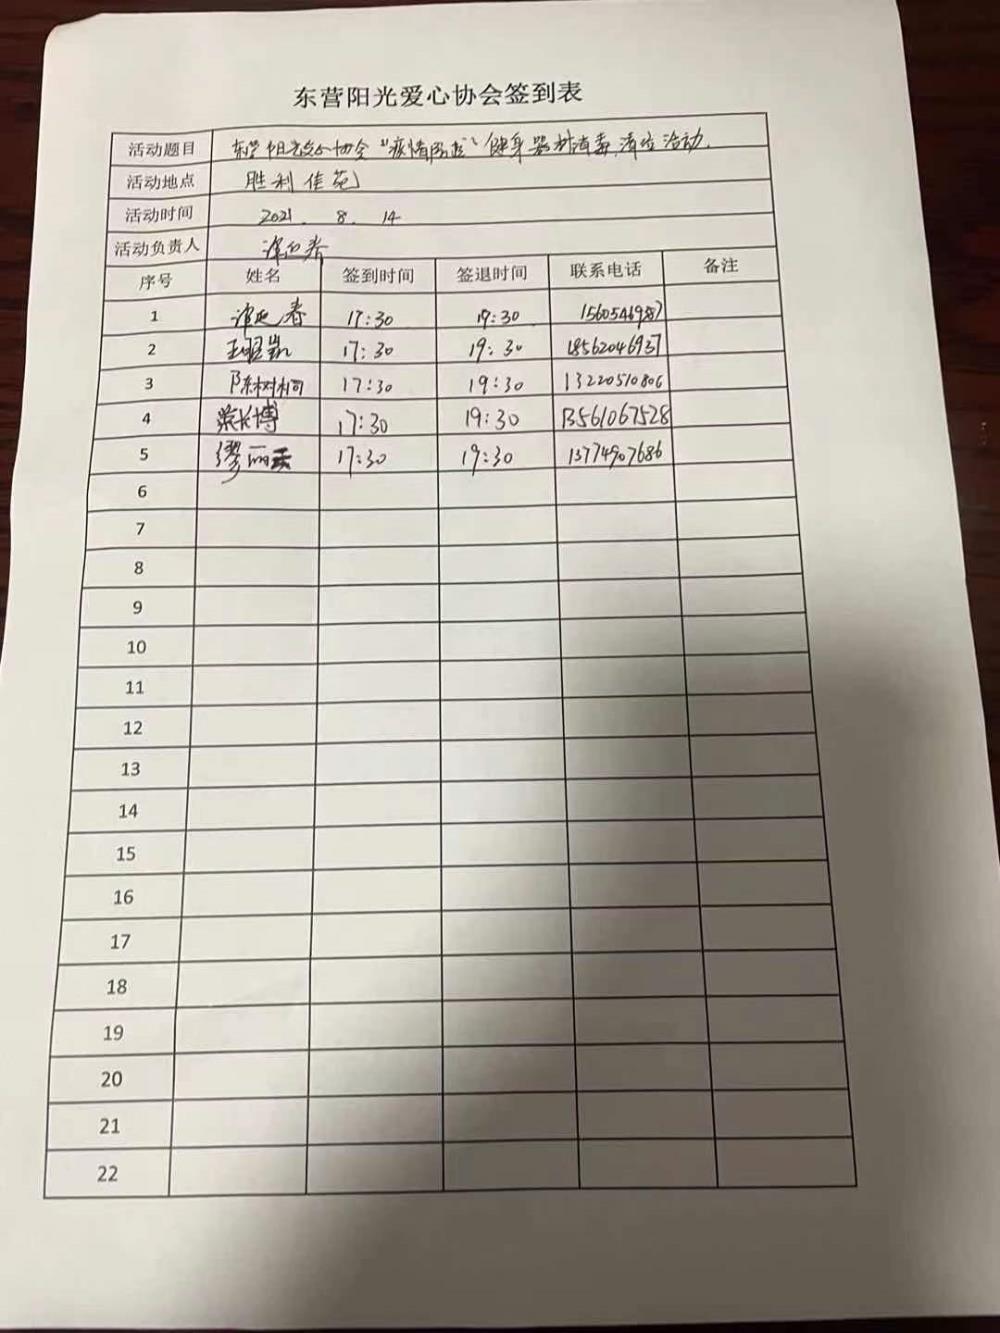 东营阳光爱心协会签到表
活动题目 东营阳光爱心协会“疫情防控”健身器材消毒、清洁活动.
活动地点 胜利佳苑
活动时间 2021. 8. 14
活动负责人 春
序号 姓名 签到时间 签退时间 联系电话 备注
1 春 17:30 19:30 1560546987
2 王 凯 17:30 19:30 18562046937
3 陈树桐 17:30 19:30 13220510806
4 长博 17:30 19:30 13561067528
5 缪丽 17:30 19:30 13774907686
6
7
8
9
10
11
12
13
14
15
16
17
18
19
20
21
22